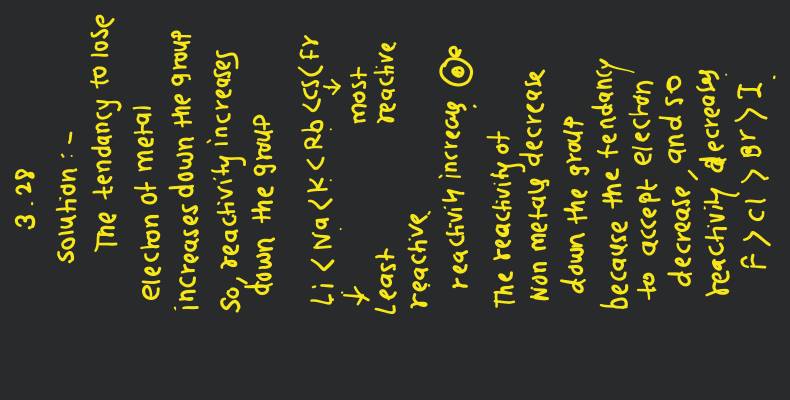 3.28
solution:-
The tendancy to lose
electon of metal
increases down the group
So, reactivity increases
down the group
Li < Na < K < Rb < Cs < Fr
↓ ↓
Least most
reactive reactive
reactivity increasy
The reactivity of
Non metaly decrease
down the group
because the tendancy
to accept electon
decrease, and so
reactivity decreasy
F > Cl > Br > I.